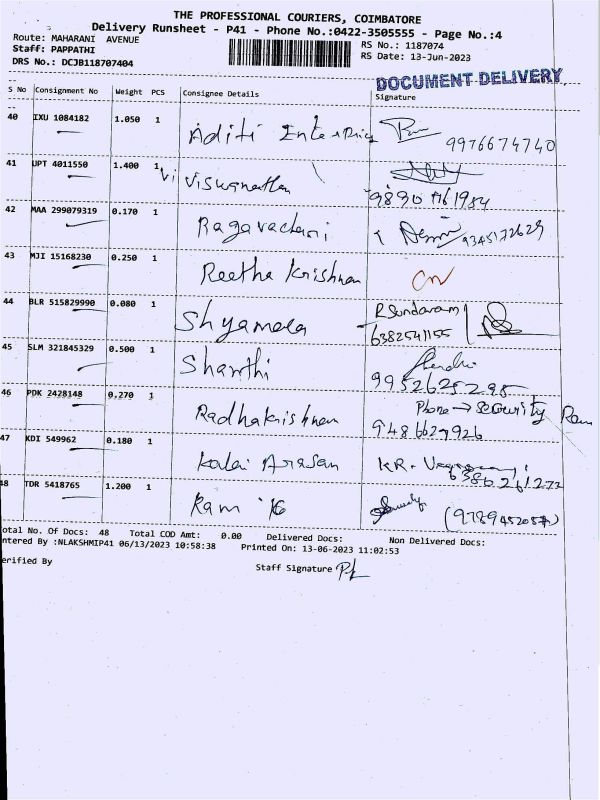 THE PROFESSIONAL COURIERS, COIMBATORE
Delivery Runsheet - P41 - Phone No.:0422-3505555 - Page No.:4
Route: MAHARANI AVENUE
RS No.: 1187074
Staff: PAPPATHI
RS Date: 13-Jun-2023
DRS No.: DCJB118707404
DOCUMENT DELIVERY
S No Consignment No Weight PCS Consignee Details Signature
40 IXU 1084182 1.050 1 Aditi Enterprices 9976674740
41 UPT 4011550 1.400 1 Vi Viswanathan
42 MAA 299079319 0.170 1 Ragavachari 9345172629
43 MJI 15168230 0.250 1 Reetha Krishnan
44 BLR 515829990 0.080 1 Shyamala R Sundaram
6382541155
45 SLM 321845329 0.500 1 Shanthi
9952625295
46 PDK 2428148 0.270 1 Radhakrishnan Phone → Security Ram
9486629926
47 KDI 549962 0.180 1 Kalai Arasan KR.
48 TDR 5418765 1.200 1 Ram
Total No. Of Docs: 48 Total COD Amt: 0.00 Delivered Docs: Non Delivered Docs:
ntered By :NLAKSHMIP41 06/13/2023 10:58:38 Printed On: 13-06-2023 11:02:53
erified By
Staff Signature